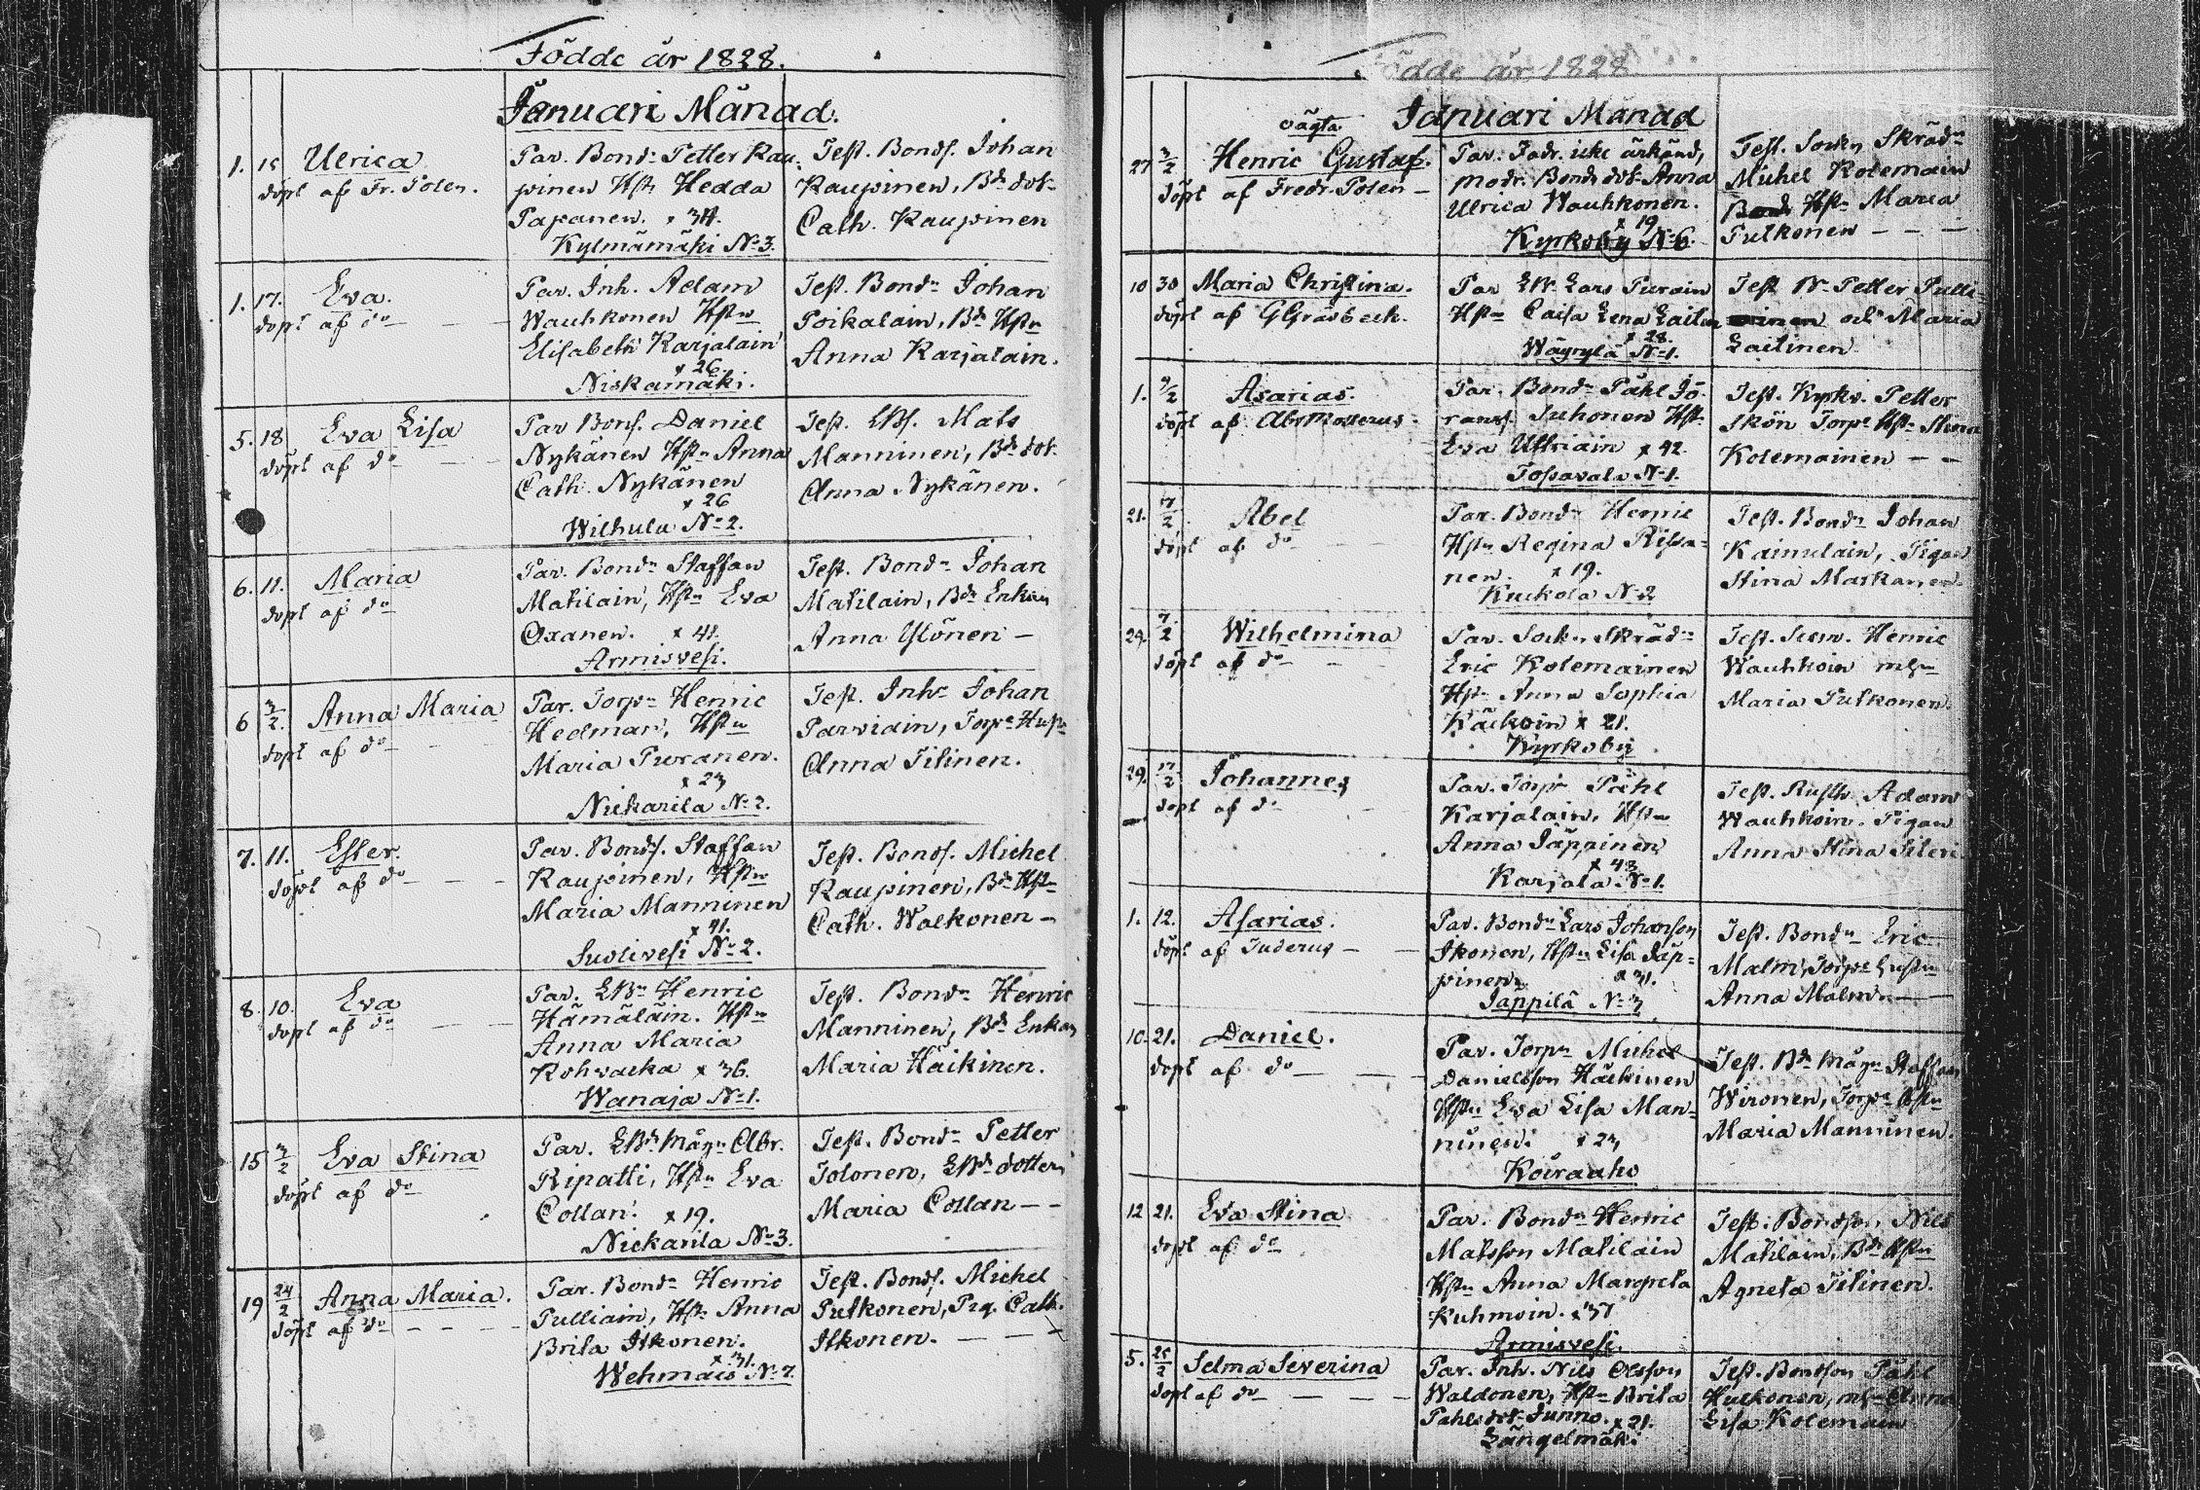 Födde år 1828.
Januari Månad.
1. 15 Ulrica
döpt af Fr. Polen.
Par. Bond: Petter Kau-
pinen Hstr Hedda
Papanen. x 34.
Kylmämäki No 3.
Test. Bonds. Johan
Kaupinen, Bd dot.
Cath. Kaupinen
1. 17. Eva.
döpt af do
Par. Inh. Adam
Wauhkonen Hstru
Elisabeth Karjalain
x 26.
Niskamäki.
Test. Bondn Johan
Poikalain, Bd Hstr
Anna Karjalain.
5. 18 Eva Lisa
döpt af do
Par Bons. Daniel
Nykänen Hstn Anna
Cath. Nykänen
x 26
Wilhula No 2.
Test. LBs. Mats
Manninen, Bd dot.
Anna Nykänen.
6. 11. Maria
döpt af do
Par. Bondn Staffan
Matilain, Hstn Eva
Oxanen. x 41.
Armisvesi.
Test. Bondn Johan
Matilain, Bde Enkan
Anna Ylönen -
6 3/2. Anna Maria
döpt af do
Par. Torpn Henric
Hedman, Hstru
Maria Puranen.
x 23
Niekarila No 2.
Test. Inhr Johan
Parviain, Torpe Hust
Anna Titinen.
7. 11. Ester.
döpt af do
Par. Bonds. Staffan
Kaupinen, Hstru
Maria Manninen
x 41.
Suolivesi No 2.
Test. Bonds. Michel
Kaupinen, Bd Hstr
Cath. Walkonen -
8. 10. Eva
döpt af do
Par. LBn Henric
Hämäläin. Hstru
Anna Maria
Rohvacka x 36.
Wanaja No 1.
Test. Bondn Henric
Manninen, Bde Enkan
Maria Häikinen.
15 3/2 Eva Stina
döpt af do
Par. LBds Mågn Abr.
Ripatti, Hstn Eva
Collan. x 19.
Niekarila No 3.
Test. Bondn Petter
Tolonen, LBds dotter
Maria Collan - -
19 24/2 Anna Maria.
döpt af do
Par. Bondn Henric
Pulliain, Hstn Anna
Brita Itkonen.
x 31.
Wehmais No 7.
Test. Bonds. Michel
Putkonen, Pig. Cath.
Itkonen. - - -
Födde år 1828
Januari Månad
oägta
27 3/2 Henric Gustaf.
döpt af Fredr. Polen -
Par. Fadr. icke ärkänd,
Modr. Bonds dot. Anna
Ulrica Wauhkonen.
x 19.
Kyrkoby No 6.
Test. Sockn Skrädn
Michel Kolemain
Hstn Maria
Putkonen - - -
10 30 Maria Christina.
döpt af G Gråsbeck.
Par LBr Lars Purain
Hstn Caisa Lena Laitin
x 28.
Wäyrylä No 1.
Test Br Petter Pulli-
ainen och Maria
Laitinen.
1. 9/2 Asarias.
döpt af Abr Mollerus.
Par. Bondn Påhl Jö-
ranss. Suhonen Hstn
Eva Ukkriain x 42.
Topavala No 1.
Test. Kyrkv. Petter
Skön Torpe Hstn Stina
Kolemainen - -
21. 7/2 Abel
döpt af do
Par. Bondn Henric
Hstn Regina Rissa-
nen. x 19.
Kuckola No 2
Test. Bondn Johan
Kainulain, Pigan
Stina Maskanen.
29. 7/2 Wilhelmina
döpt af do
Par. Sockn Skrädn
Eric Kolemainen
Hstn Anna Sophia
Käckoin x 21.
Kyrkoby
Test. Henric
Wauhkoin
Maria Putkonen.
29. 17/2 Johannes
döpt af do
Par. Torpr Påhl
Karjalain, Hstru
Anna Jäppinen
x 43
Karjala No 1.
Test. Rusth. Adam
Wauhkoin. Pigan
Anna Stina
1. 12. Asarias.
döpt af Tuderus -
Par. Bondn Lars Johanson
Ikonen, Hstn Lisa Jäp-
pinen x 31.
Jäppilä No 3
Test. Bondn Eric
Malm, Torpe Hustru
Anna Malm. -
10. 21. Daniel.
döpt af do
Par. Torpn Michel
Danielsson Häckinen
Hstn Eva Lisa Man-
ninen. x 23
Koiraaho
Test. Bds Mågn Staffan
Wironen, Torpe Hstn
Maria Manninen.
12 21. Eva Stina
döpt af do
Par. Bondn Henric
Matsson Matilain
Hstn Anna Margreta
Kuhmoin. x 37
Armisvesi.
Test. Bondson Nils
Matilain, Bds Hstn
Agneta Titinen.
5. 25/2 Selma Severina
döpt af do
Par. Inh. Nils Olsson
Waldonen, Hstn Brita
Påhlsdot. Junno. x 21.
Längelmäki
Test. Bondson Påhl
Hulkonen, Anna
Lisa Kolemain